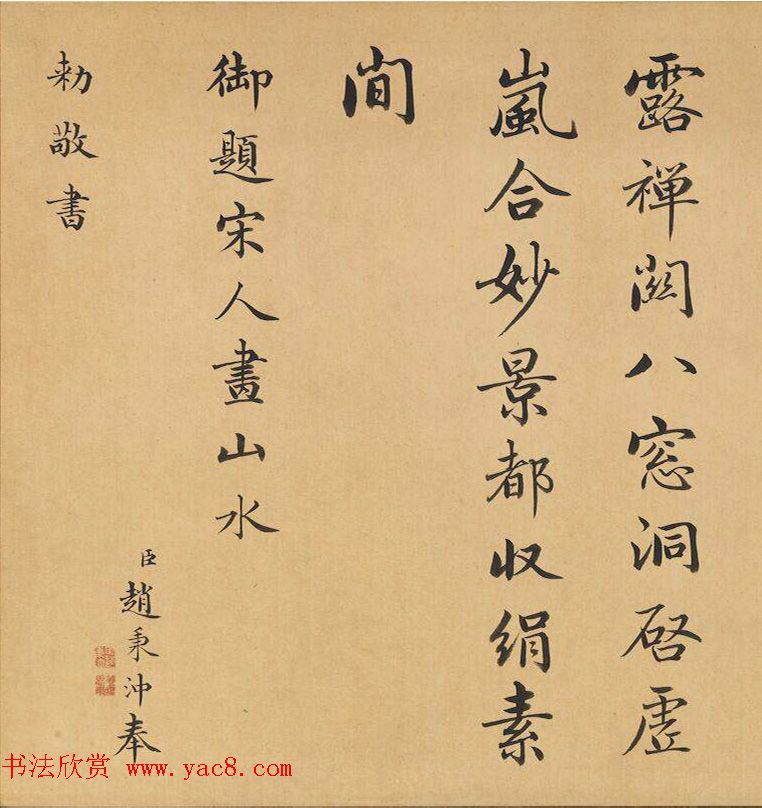 露禪關八窓洞啓虛
嵐合妙景都收絹素
間
御題宋人畫山水
臣趙秉沖奉
勅敬書
书法欣赏 www.yac8.com